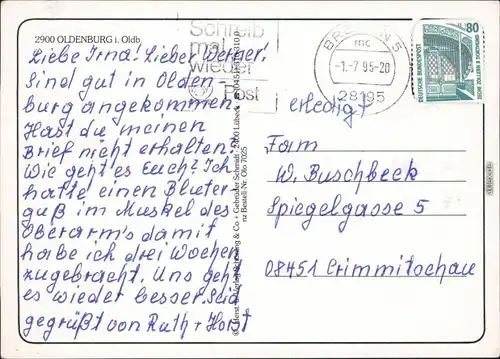 2900 OLDENBURG i. Oldb.
Liebe Irna! Lieber Werner!
Sind gut in Olden
burg angekommen
Hast du meinen
Brief nicht erhalten.
Wie geht es Euch? Ich
hatte einen Bluter
guß im Muskel des
Oberarm's damit
habe ich drei Wochen
zugebracht. Uns geht
es wieder besser. Seid
gegrüßt von Ruth + Horst
Schreib
mal
wieder
Post
BREMEN 5
mc
-1.-7 95-20
28195
80
DEUTSCHE BUNDESPOST
erledigt
Fam
W. Buschbeck
Spiegelgasse 5
08451 Crimmitschau